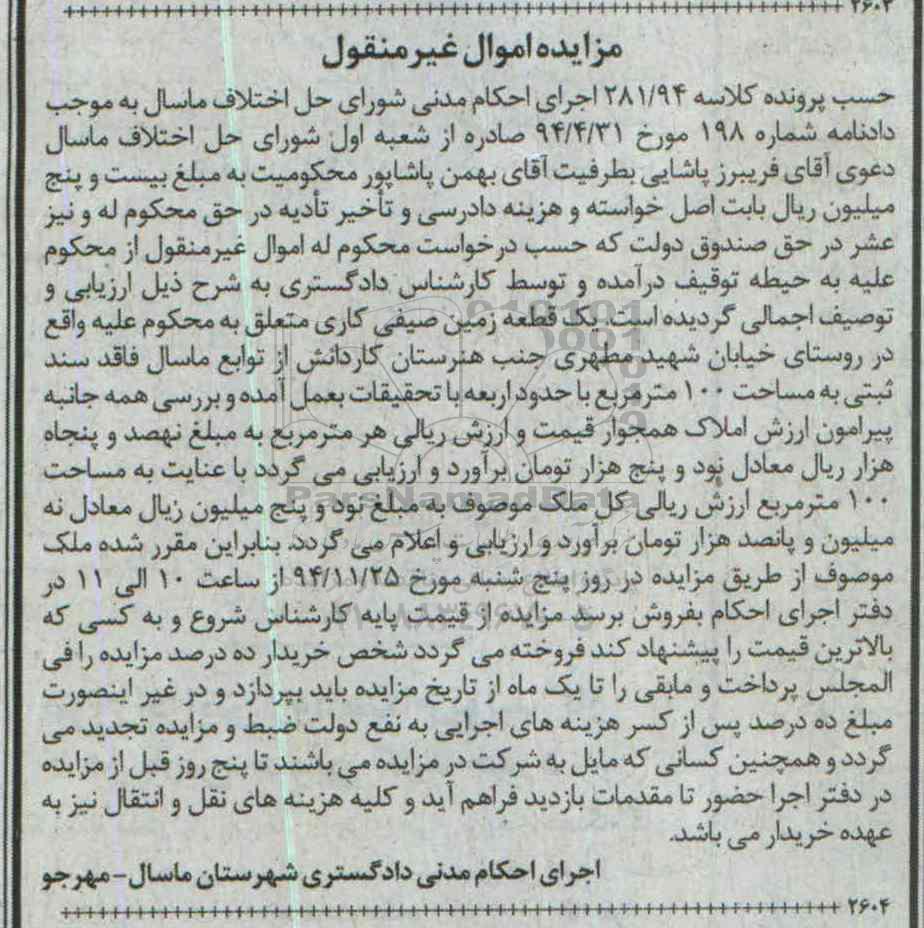 ۲۶۰۳
مزایده اموال غیرمنقول
حسب پرونده کلاسه ۲۸۱/۹۴ اجرای احکام مدنی شورای حل اختلاف ماسال به موجب
دادنامه شماره ۱۹۸ مورخ ۹۴/۴/۳۱ صادره از شعبه اول شورای حل اختلاف ماسال
دعوی آقای فریبرز پاشایی بطرفیت آقای بهمن پاشاپور محکومیت به مبلغ بیست و پنج
میلیون ریال بابت اصل خواسته و هزینه دادرسی و تأخیر تأدیه در حق محکوم له و نیز
عشر در حق صندوق دولت که حسب درخواست محکوم له اموال غیرمنقول از محکوم
علیه به حیطه توقیف درآمده و توسط کارشناس دادگستری به شرح ذیل ارزیابی و
توصیف اجمالی گردیده است. یک قطعه زمین صیفی کاری متعلق به محکوم علیه واقع
در روستای خیابان شهید مطهری جنب هنرستان کاردانش از توابع ماسال فاقد سند
ثبتی به مساحت ۱۰۰ مترمربع با حدود اربعه با تحقیقات بعمل آمده و بررسی همه جانبه
پیرامون ارزش املاک همجوار قیمت و ارزش ریالی هر مترمربع به مبلغ نهصد و پنجاه
هزار ریال معادل نود و پنج هزار تومان برآورد و ارزیابی می گردد با عنایت به مساحت
۱۰۰ مترمربع ارزش ریالی کل ملک موصوف به مبلغ نود و پنج میلیون ریال معادل نه
میلیون و پانصد هزار تومان برآورد و ارزیابی و اعلام می گردد. بنابراین مقرر شده ملک
موصوف از طریق مزایده در روز پنج شنبه مورخ ۹۴/۱۱/۲۵ از ساعت ۱۰ الی ۱۱ در
دفتر اجرای احکام بفروش برسد مزایده از قیمت پایه کارشناس شروع و به کسی که
بالاترین قیمت را پیشنهاد کند فروخته می گردد شخص خریدار ده درصد مزایده را فی
المجلس پرداخت و مابقی را تا یک ماه از تاریخ مزایده باید بپردازد و در غیر اینصورت
مبلغ ده درصد پس از کسر هزینه های اجرایی به نفع دولت ضبط و مزایده تجدید می
گردد و همچنین کسانی که مایل به شرکت در مزایده می باشند تا پنج روز قبل از مزایده
در دفتر اجرا حضور تا مقدمات بازدید فراهم آید و کلیه هزینه های نقل و انتقال نیز به
عهده خریدار می باشد.
اجرای احکام مدنی دادگستری شهرستان ماسال-مهرجو
۲۶۰۴
ParsNamadData